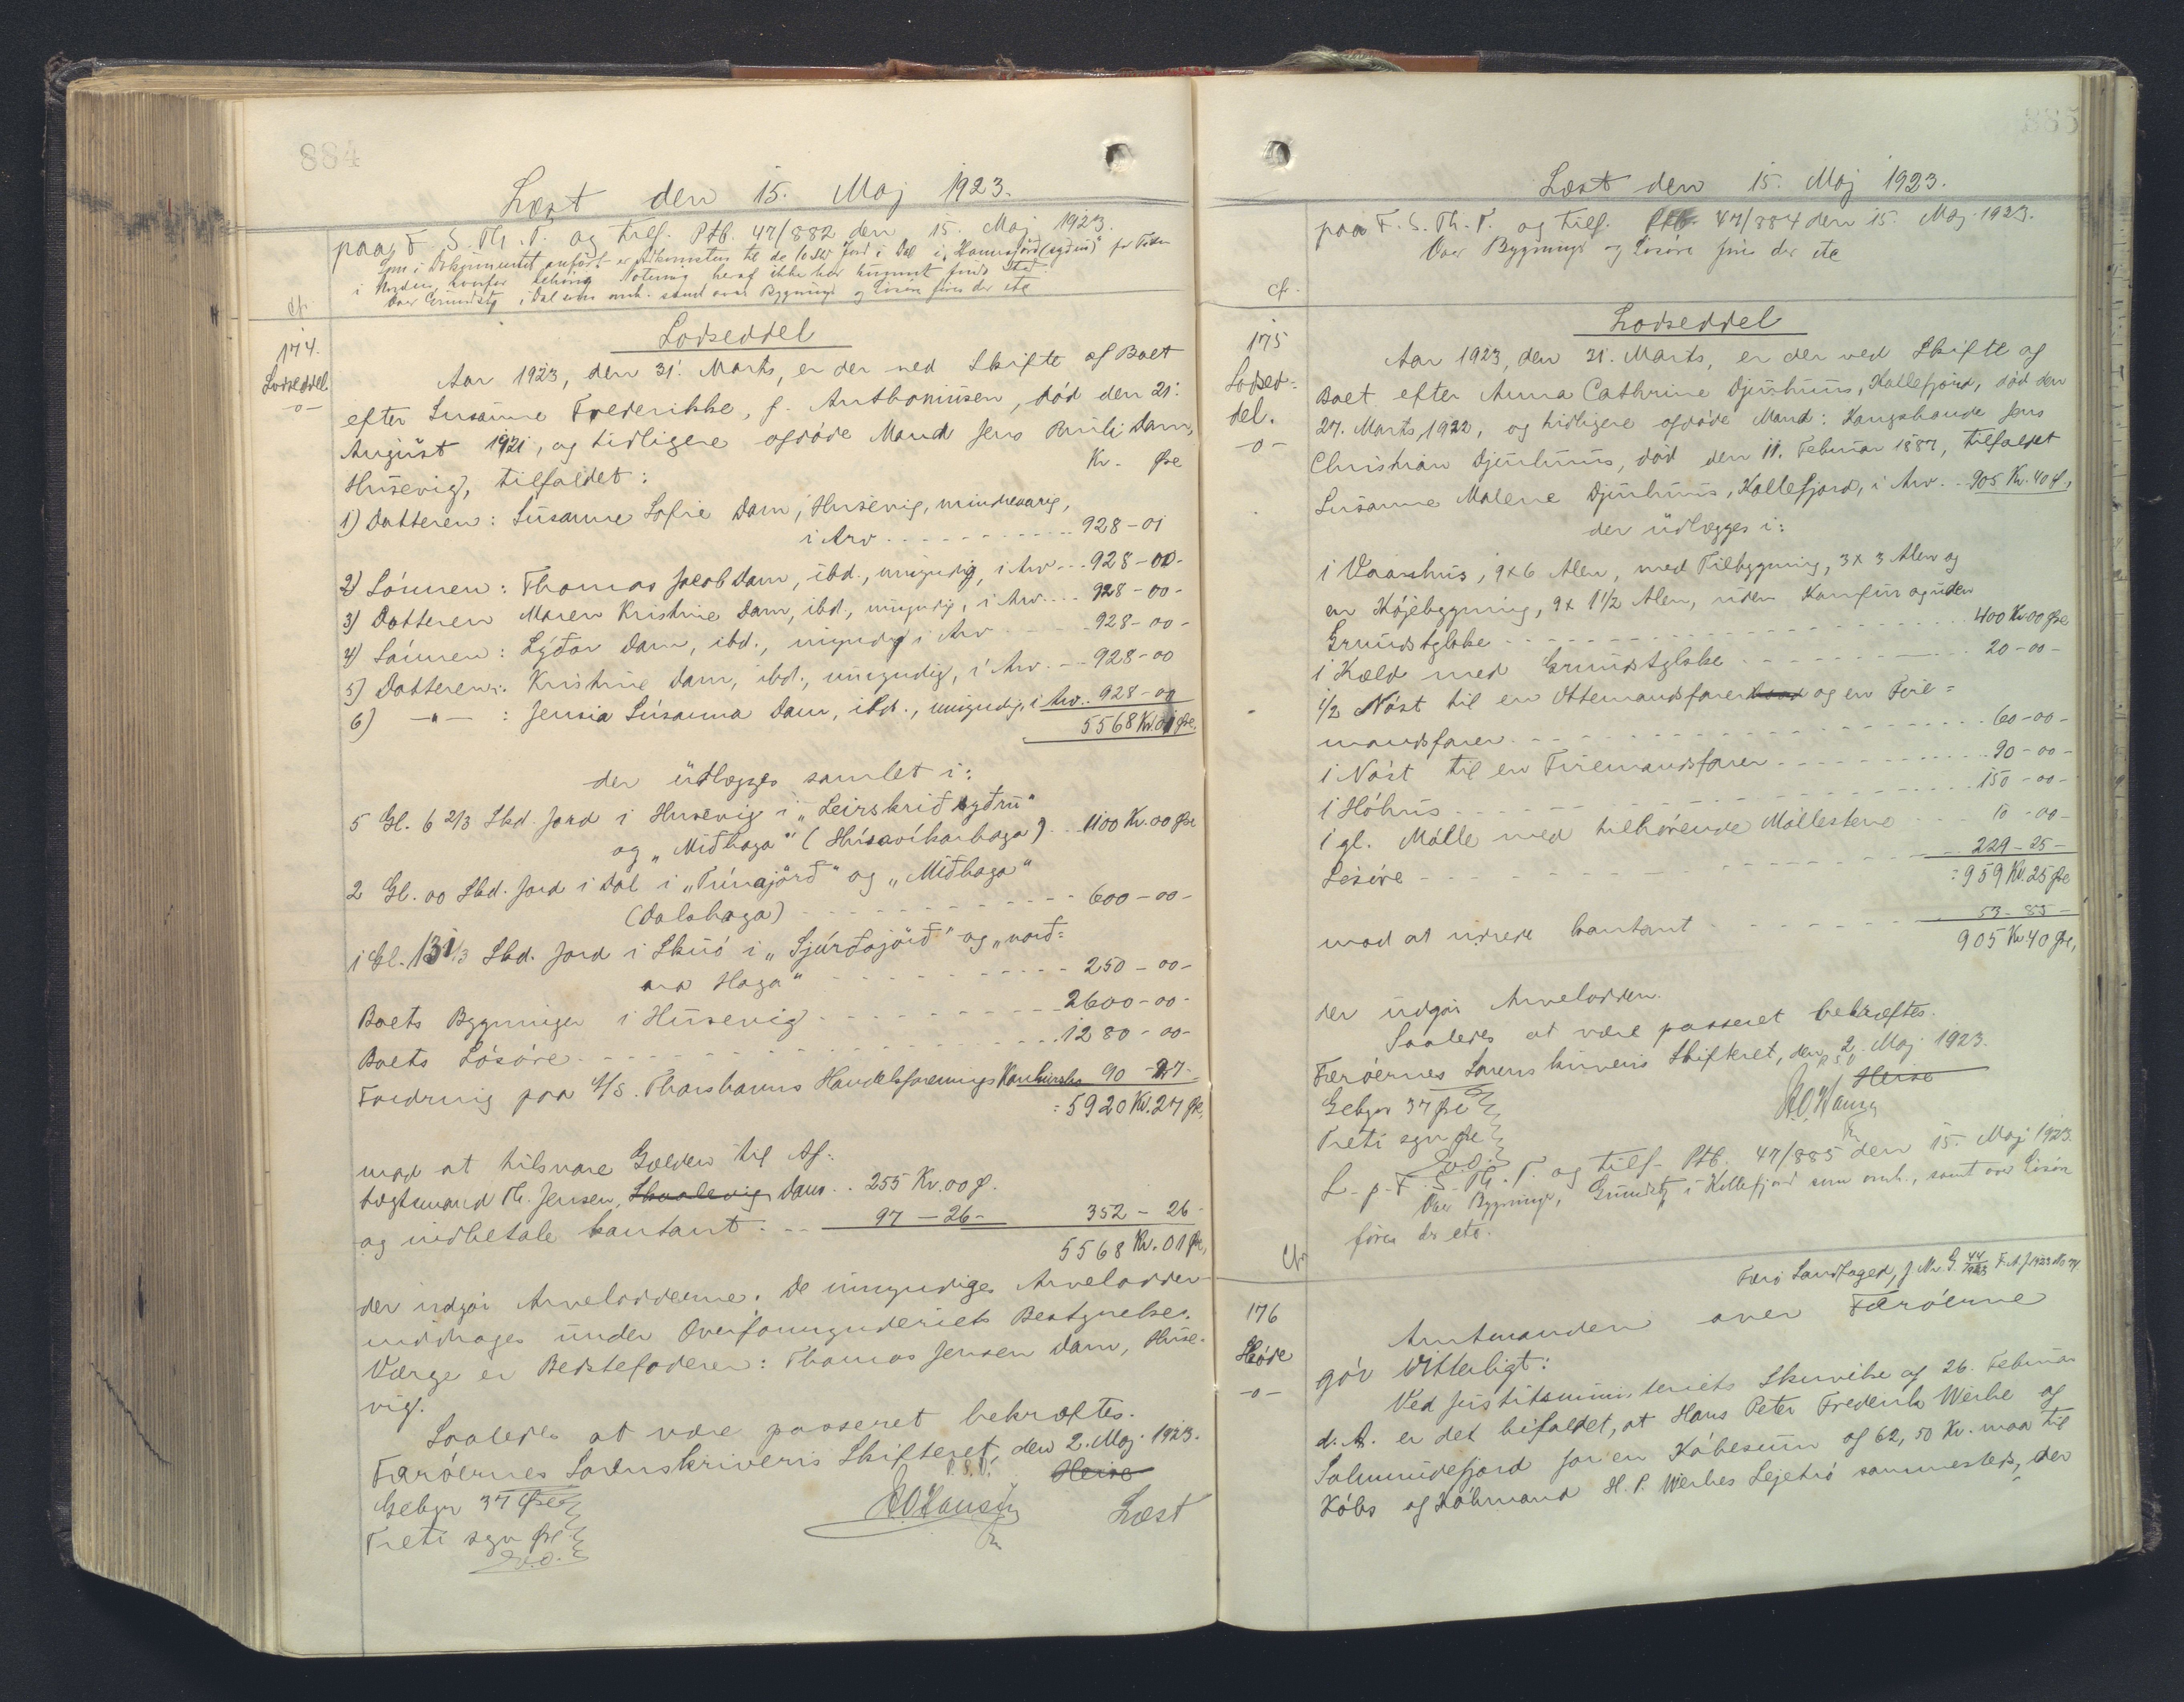 884
Læst den 15. Maj 1923.
paa F. S. Th. T. og tilf. Ptb. 47/882 den 15. Maj 1923.
som i Dokumentet anført er Adkomsten til de 10 Skd Jord i Dal i „
i Norden, hvorfor behørig Notering heraf ikke har kunnet finde Sted.
over Grundstg i Dal som omh. samt over Bygninge og Løsøre fives der etc
cfr
174.
Lodseddel
-o-
Lodseddel
Aar 1923, den 31. Marts, er der ved Skifte af Boet
efter Susanne Frederikke, f. Anthoniusen, død den 21.
August 1921, og tidligere afdøde Mand Jens Pauli Dam,
Husevig, tilfaldet: Kr. Øre
1) Datteren: Susanne Sofie Dam, Husevig, mindreaarig,
i Arv 928-01
2) Sønnen: Thomas Jacob Dam, ibd., umyndig, i Arv 928-00-
3) Datteren Maren Kristine Dam, ibd., umyndig, i Arv 928-00-
4) Sønnen: Lýðar Dam, ibd., umyndig i Arv 928-00-
5) Datteren: Kristine Dam, ibd., umyndig, i Arv 928-00
6) -"- : Jensia Súsanna Dam, ibd., umyndig, i Arv 928-00
5568 Kr. 01 Øre,
der udlægges samlet i:
5 Gl. 6 2/3 Skd. Jord i Husevig i „Leirskrið syðru"
og „Miðhaga" (Húsavíkarhaga) 1100 Kr. 00 Øre
2 Gl. 00 Skd. Jord i Dal i „Trúnajørð" og „Miðhaga"
(Dalshaga) 600-00-
1 Gl. 13 1/3 Skd. Jord i Skuó i „Sjúrðajørð" og „norð=
ara Haga" 250-00-
Boets Bygninger i Husevig 2600-00-
Boets Løsøre 1280-00-
Fordring paa A/S. Thorshavns Handelsforenings Konkursbo 90-27-
: 5920 Kr. 27 Øre,
mod at tilsvare Gælden til Af=
tægtsmand Th. Jensen, Skaalevig Dam 255 Kr. 00 Ø.
og indbetale kontant: 97-26- 352-26-
5568 Kr. 01 Øre,
der udgør Arvelodderne. De umyndiges Arvelodder
inddrages under Overformynderiets Bestyrelse.
Værge er Bedstefaderen: Thomas Jensen Dam, Huse=
vig.
Saaledes at være passeret bekræftes.
Færøernes Sorenskriveris Skifteret, den 2. Maj 1923.
P.S.V.
Heise
Gebyr 37 Øre
Treti syv Øre
J.O. Hansen
Læst
885
Læst den 15. Maj 1923.
paa F. S. Th. T. og tilf. Ptb. 47/884 den 15. Maj 1923.
Over Bygninge og Løsøre fives der etc
cfr.
175
Lodsed=
del.
-o-
Lodseddel
Aar 1923, den 31. Marts, er der ved Skifte af
Boet efter Anna Cathrine Djurhuus, Kollefjord, død den
27. Marts 1922, og tidligere afdøde Mand: Kongsbonde Jens
Christian Djurhuus, død den 11. Februar 1887, tilfaldet
Susanne Malene Djurhuus, Kollefjord, i Arv 905 Kr. 40 Ø.,
der udlægges i:
1 Vaanhus, 9x6 Alen, med Tilbygning, 3x3 Alen og
en Køjebygning, 9x1 1/2 Alen, uden Komfur og uden
Grundstykke 400 Kr 00 Øre
1 Kæld med Grundstykke 20-00-
1/2 Nøst til en Ottemandsfarer og en Fire=
mandsfarer 60-00-
1 Nøst til en Firemandsfarer 90-00-
1 Hóhus 150-00-
1 gl. Mølle med tilhørende Møllestene 10-00-
Løsøre 229-25-
: 959 Kr. 25 Øre
mod at udrede kontant 53-85-
905 Kr. 40 Øre,
der udgør Arvelodden.
Saaledes at være passeret bekræftes.
Færøernes Sorenskriveris Skifteret, den 2. Maj 1923.
P.S.V.
Heise
Gebyr 37 Øre
Treti syv Øre
J.O. Hansen
L. p. F. S. Th. T. og tilf. Ptb. 47/885 den 15. Maj 1923.
Over Bygninge, Grundstg i Kollefjord som omh., samt over Løsøre
fives der etc.
Cfr
176
Skøde
-o-
Færø Landfoged, J. Nr. G. 44/1923 F.A. J. 1923 No
Amtmanden over Færøerne
gør Vitterligt:
Ved Justitsministeriets Skrivelse af 26. Februar
d. A. er det bifaldet, at Hans Peter Frederik Wenke af
Salmundefjord for en Købesum af 62,50 Kr. maa til
Købs af Købmand H. P. Wenkes Lejetró sammesteds, der